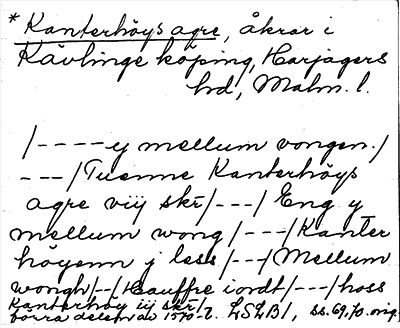 * Kanterhöys agre, åkrar i
Kävlinge köping, Harjagers
hd, Malm. l.
/----y mellum vongen./
---/Tuenne Kanterhöys
agre viij skr/---/ Eng y
mellum wong /---/Kanter
höyenn j less /---/Mellum
wongh/--/Hauffre iordt/---/hoss
Kanterhöy iij skr/
förra delen av 1570-t. LSLB1, ss. 69, 70. orig.